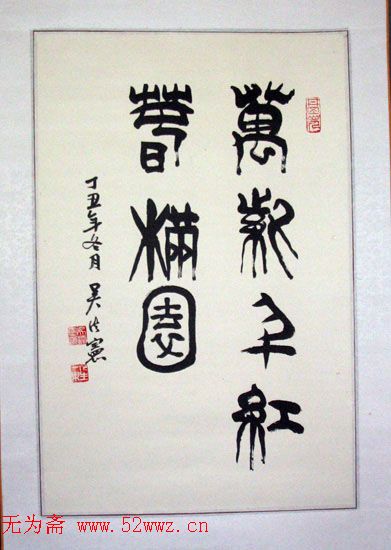 萬紫千紅
春滿園
丁丑年冬月 吴法憲
无为斋 www.52wwz.cn